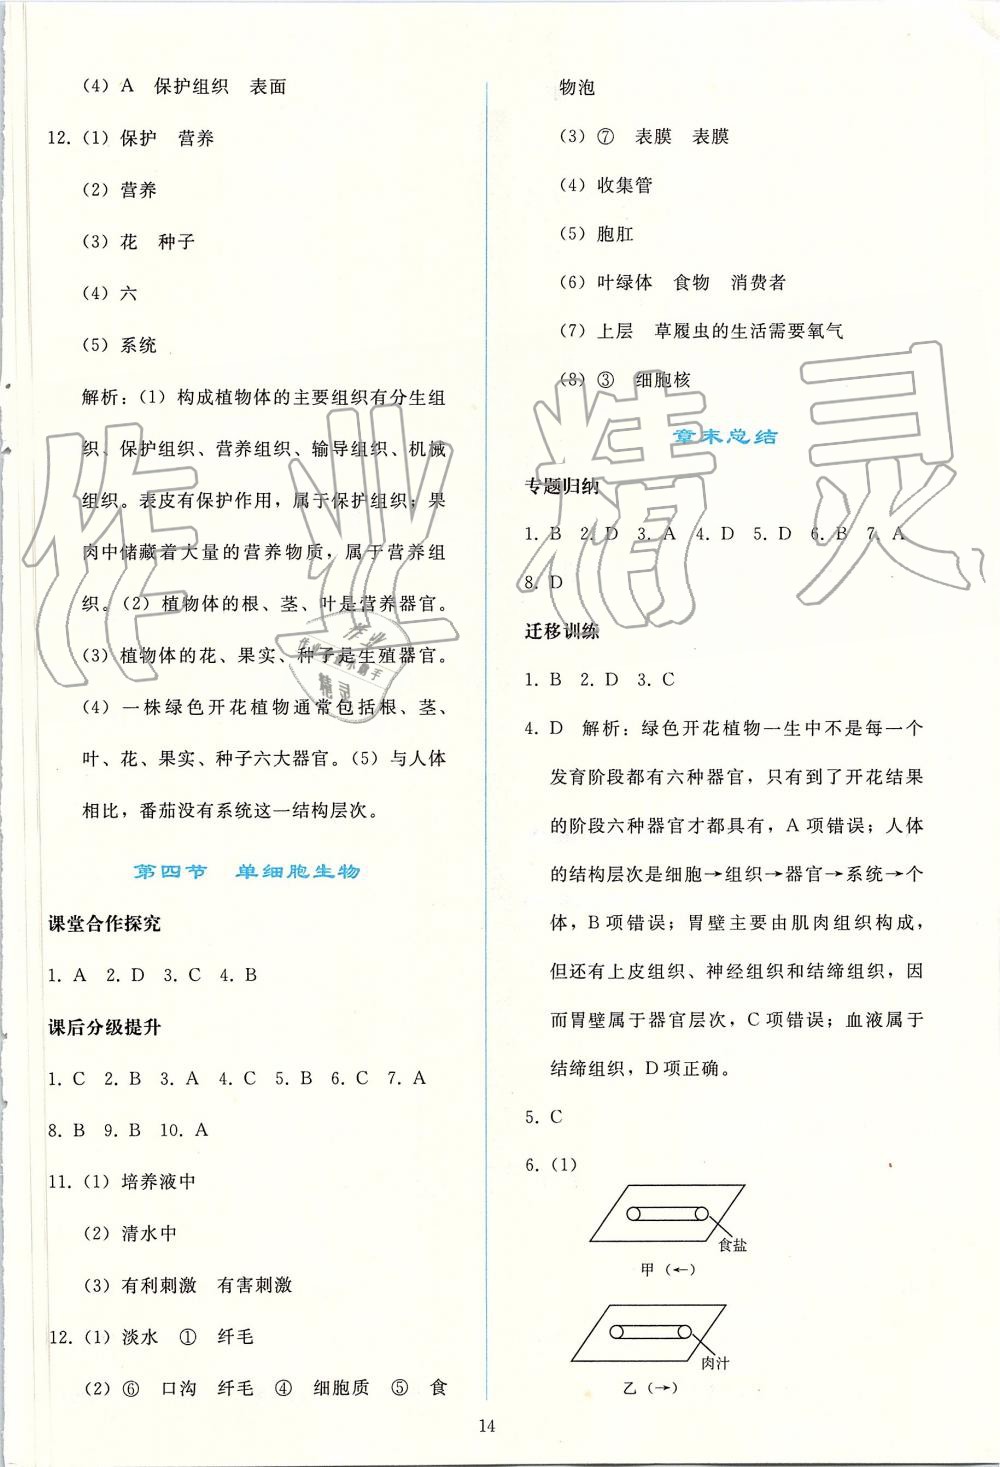 (4) A 保护组织 表面
12. (1) 保护 营养
(2) 营养
(3) 花 种子
(4) 六
(5) 系统
解析:(1) 构成植物体的主要组织有分生组
织、保护组织、营养组织、输导组织、机械
组织。表皮有保护作用，属于保护组织；果
肉中储藏着大量的营养物质，属于营养组
织。(2) 植物体的根、茎、叶是营养器官。
(3) 植物体的花、果实、种子是生殖器官。
(4) 一株绿色开花植物通常包括根、茎、
叶、花、果实、种子六大器官。(5) 与人体
相比，番茄没有系统这一结构层次。
第四节 单细胞生物
课堂合作探究
1. A 2. D 3. C 4. B
课后分级提升
1. C 2. B 3. A 4. C 5. B 6. C 7. A
8. B 9. B 10. A
11. (1) 培养液中
(2) 清水中
(3) 有利刺激 有害刺激
12. (1) 淡水 ① 纤毛
(2) ⑥ 口沟 纤毛 ④ 细胞质 ⑤ 食
物泡
(3) ⑦ 表膜 表膜
(4) 收集管
(5) 胞肛
(6) 叶绿体 食物 消费者
(7) 上层 草履虫的生活需要氧气
(8) ③ 细胞核
章末总结
专题归纳
1. B 2. D 3. A 4. D 5. D 6. B 7. A
8. D
迁移训练
1. B 2. D 3. C
4. D 解析：绿色开花植物一生中不是每一个
发育阶段都有六种器官，只有到了开花结果
的阶段六种器官才都具有，A 项错误；人体
的结构层次是细胞→组织→器官→系统→个
体，B 项错误；胃壁主要由肌肉组织构成，
但还有上皮组织、神经组织和结缔组织，因
而胃壁属于器官层次，C 项错误；血液属于
结缔组织，D 项正确。
5. C
6. (1)
食盐
甲 (←)
肉汁
乙 (→)
14
作业精灵
作业
精灵